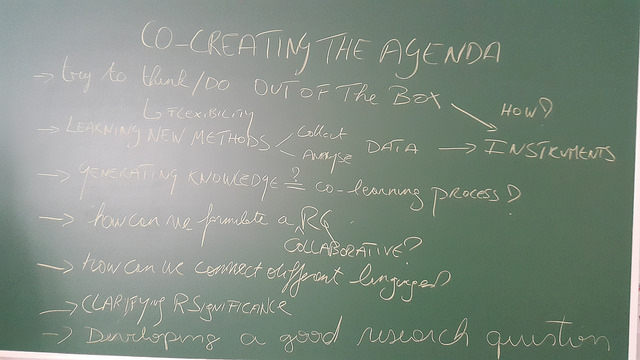 CO-CREATING THE AGENDA
→ try to think/DO OUT OF The Box
↳ FLEXIBILITY
HOW?
→ LEARNING NEW METHODS < Collect Analyse DATA → INSTRUMENTS
→ GENERATING KNOWLEDGE ?= co-learning process?
→ how can we formulate a RQ
COLLABORATIVE?
→ How can we connect different languages?
→ CLARIFYING R SIGNIFICANCE
→ Developing a good research question